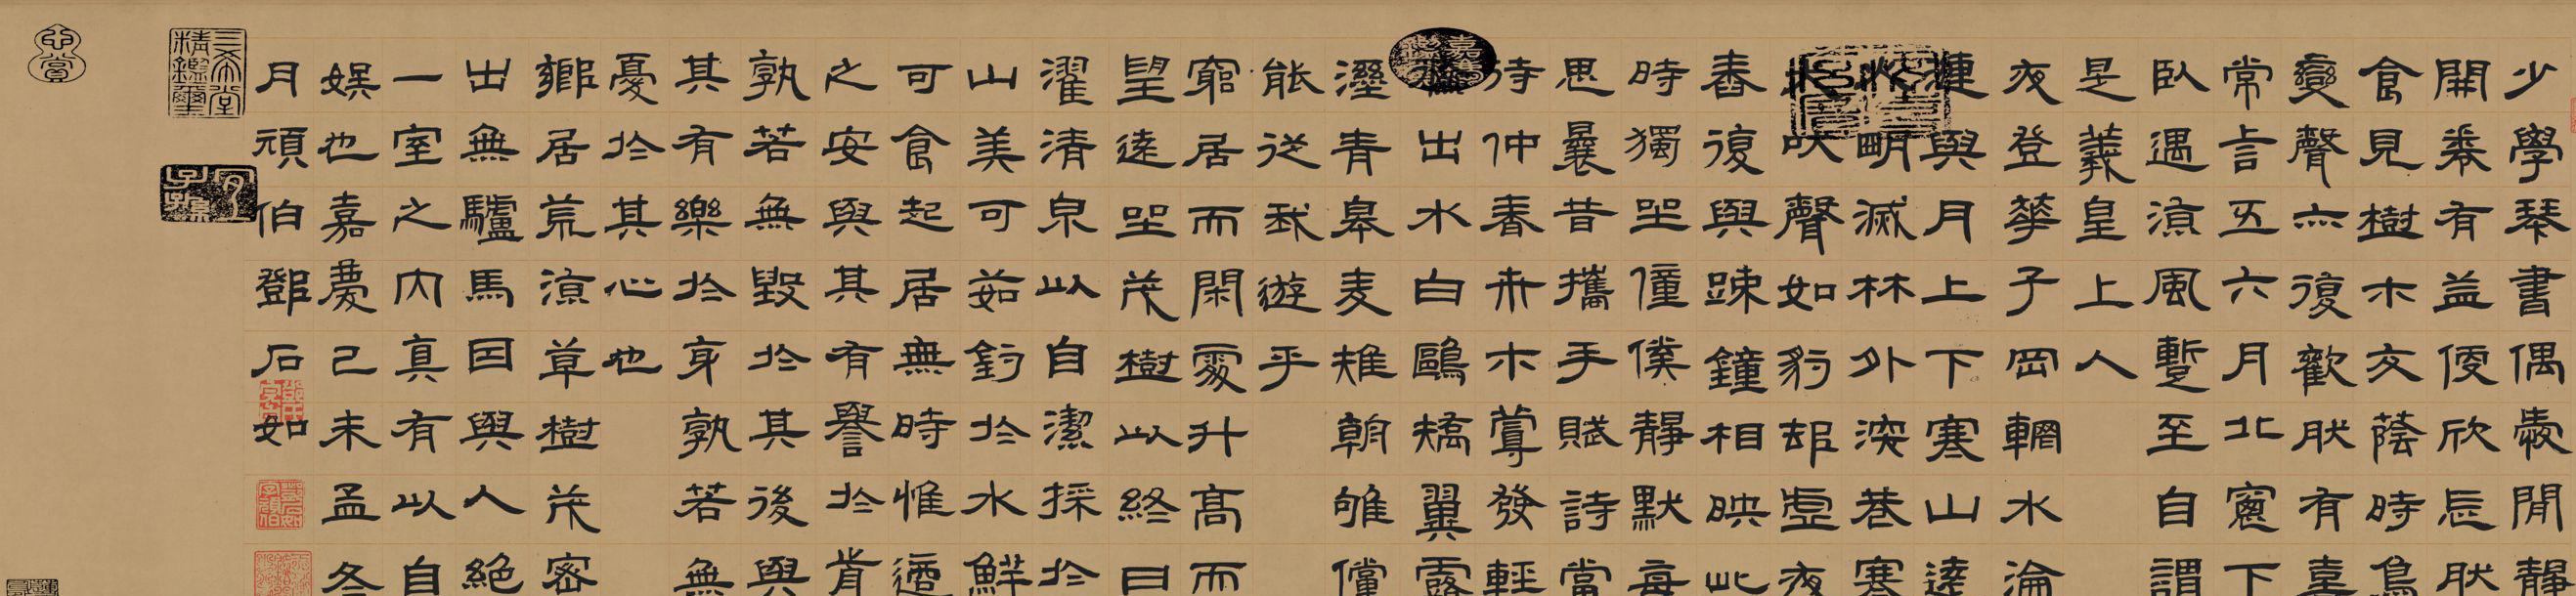 少學琴書偶愛閒靜
開卷有益便欣忘肰
食見樹木交蔭時鳥
變聲亦復歡肰有喜
常言五六月北窗下
臥遇涼風暫至自謂
是羲皇上人
夜登華子岡輞水淪
漣與月上下寒山遠
火明滅林外深巷寒
吠聲如豹邨虛夜
舂復與疎鐘相映此
時獨坐僮僕靜默每
思曩昔攜手賦詩當
待仲春卉木蔓發輕
出水白鷗矯翼露
溼青皋麦雉朝雊儻
能從我遊乎
窮居而閑處升高而
望遠坐茂樹以終日
濯清泉以自潔採於
山美可茹釣於水鮮
可食起居無時惟適
之安與其有譽於歬
孰若無毀於其後與
其有樂於身孰若無
憂於其心也
鄉居荒涼草樹茂密
出無驢馬因與人絕
一室之內真有以自
娛也嘉慶己未孟冬
月頑伯鄧石如
三希堂精鑑璽
宜子孫